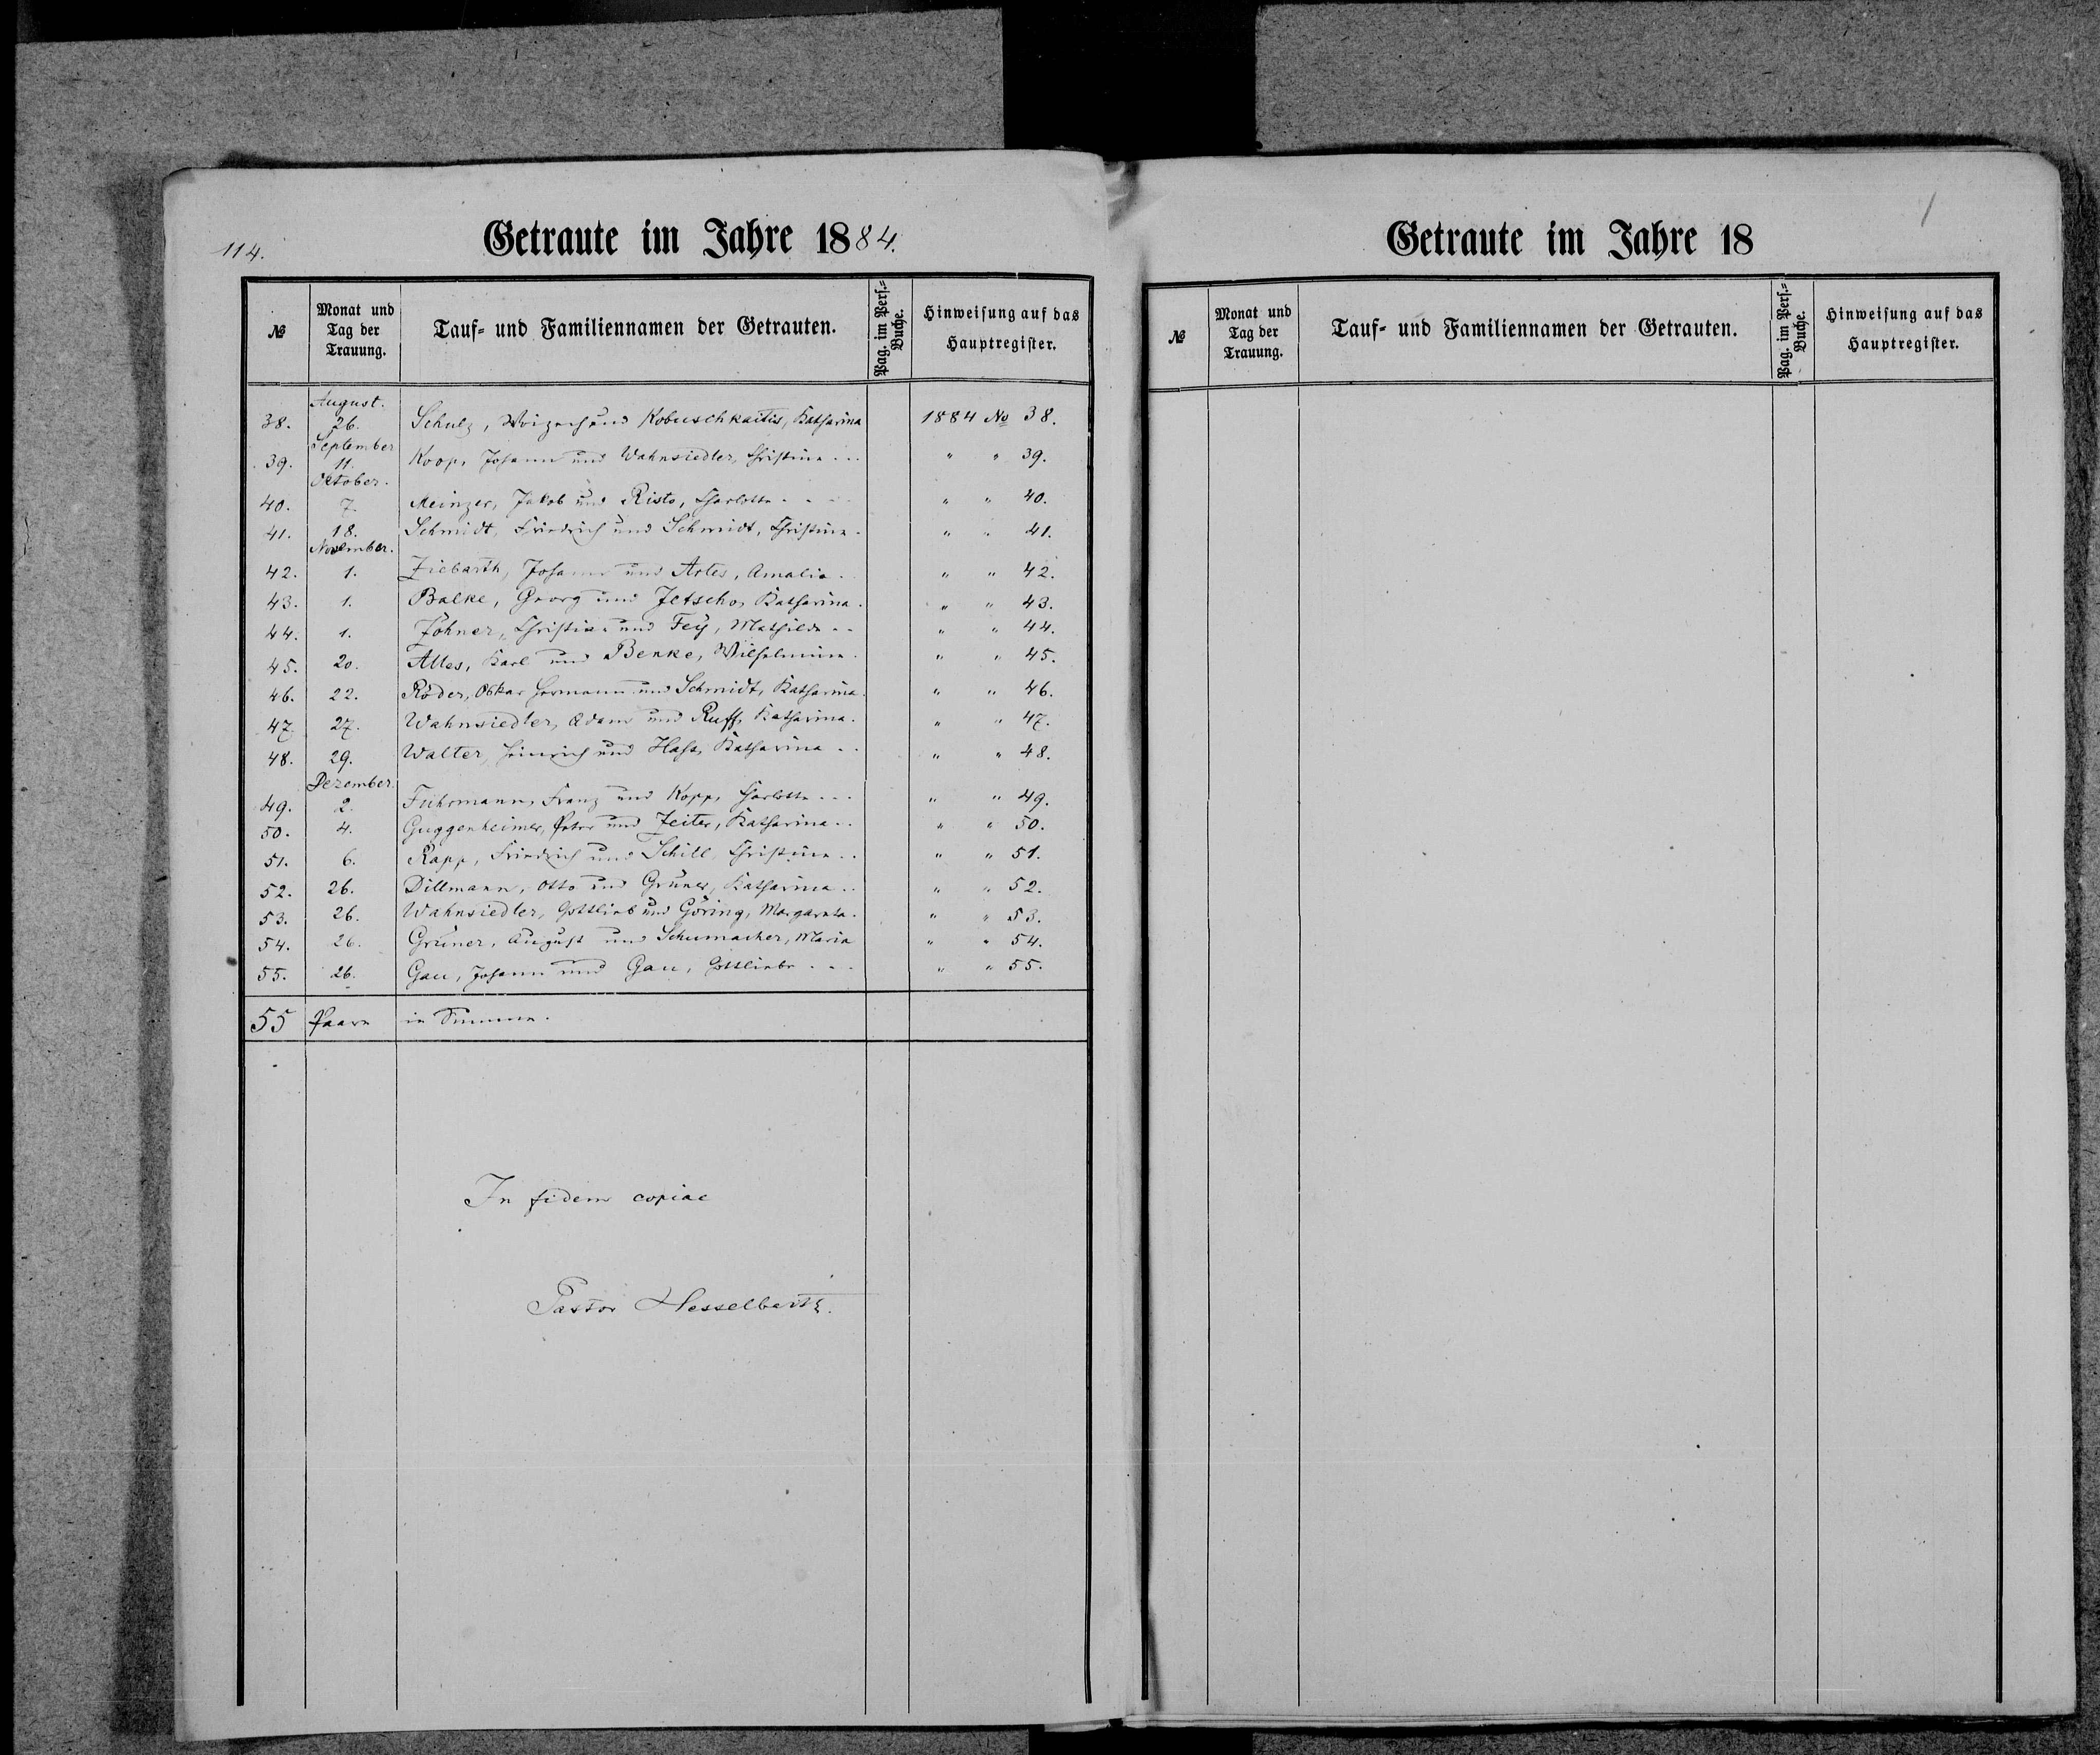 114.
Getraute im Jahre 1884.
№ | Monat und Tag der Trauung. | Tauf- und Familiennamen der Getrauten. | Pag. im Pers.-Buche. | Hinweisung auf das Hauptregister.
August.
38. 26. Schulz, und Kobuschkaitis, Katharina 1884 № 38.
September
39. 11. Koop, Johann und Wahnsiedler, Christine... " " 39.
Oktober.
40. 7. Meinzer, Jakob und Risto, Charlotte - - - " " 40.
41. 18. Schmidt, Friedrich und Schmidt, Christine. " " 41.
November.
42. 1. Ziebarth, Johann und Artes, Amalie. " " 42.
43. 1. Balke, Georg und Jetscho, Katharina. " " 43.
44. 1. Johner, Christian und Fey, Mathilde - - " " 44.
45. 20. Alles, Karl und Benke, Wilhelmine. " " 45.
46. 22. Röder, Oskar Hermann und Schmidt, Katharina. " " 46.
47. 27. Wahnsiedler, Adam und Ruff, Katharina. " " 47.
48. 29. Walter, Heinrich und Hass, Katharina - . " " 48.
Dezember.
49. 2. Fuhrmann, Franz und Kopp, Charlotte - - - " " 49.
50. 4. Guggenheimer, Peter und Zeiter, Katharina - . " " 50.
51. 6. Rapp, Friedrich und Schill, Christine - . " " 51.
52. 26. Dillmann, Otto und Grüner, Katharina . . " " 52.
53. 26. Wahnsiedler, Gottlieb und Göring, Margareta. " " 53.
54. 26. Grüner, August und Schumacher, Maria " " 54.
55. 26. Gau, Johann und Gau, Gottliebe . - - " " 55.
55 Paare in Summa.
In fidem copiae
Pastor Hesselbarth.
Getraute im Jahre 18
№ | Monat und Tag der Trauung. | Tauf- und Familiennamen der Getrauten. | Pag. im Pers.-Buche. | Hinweisung auf das Hauptregister.